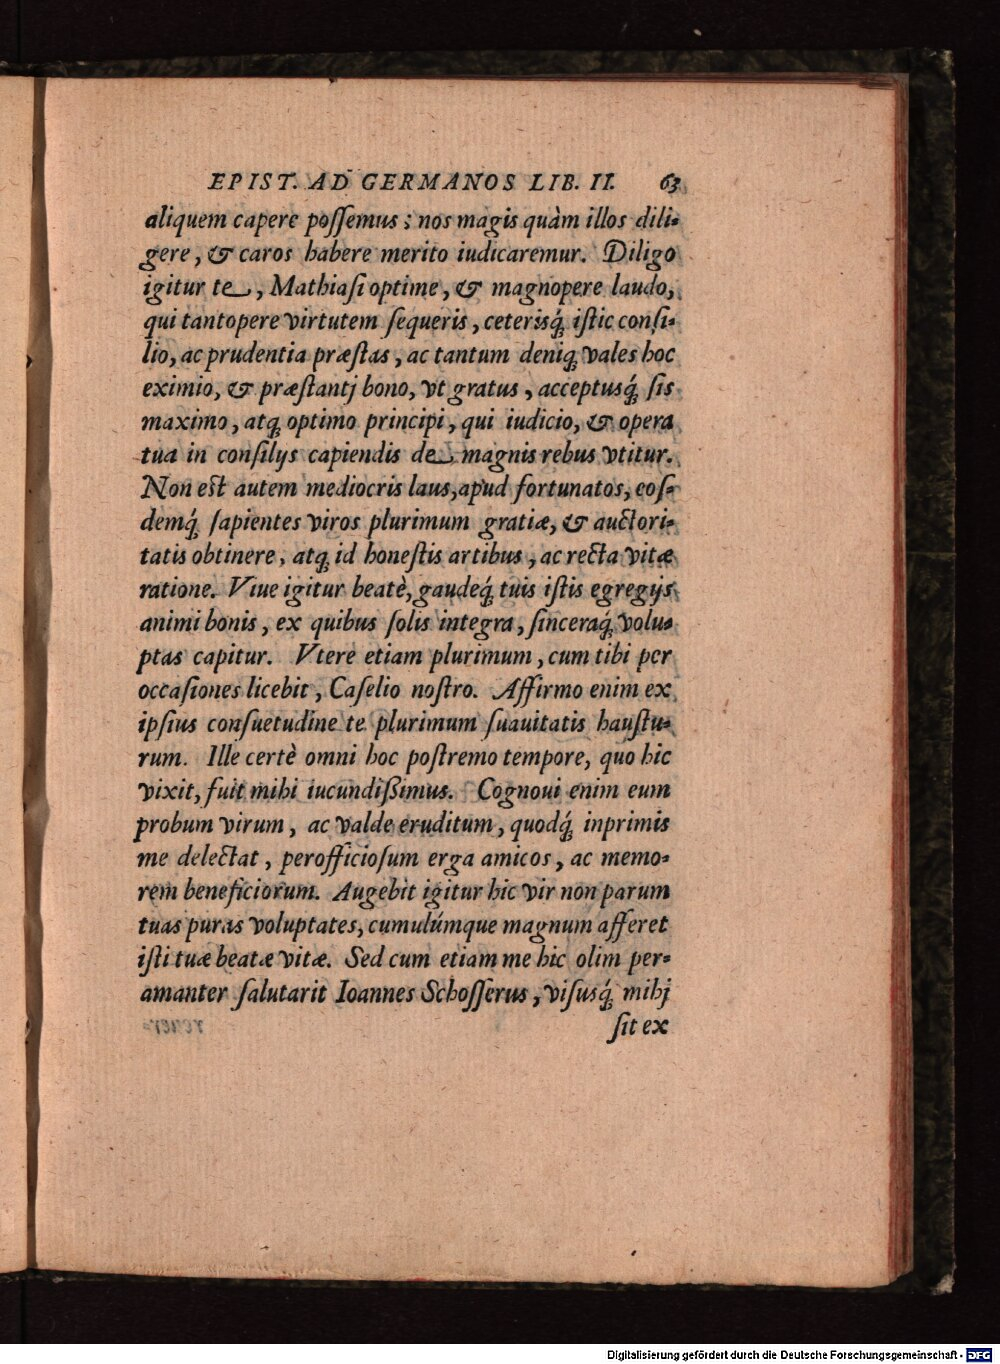 EPIST. AD GERMANOS LIB. II. 63
aliquem capere poſſemus; nos magis quàm illos dili-
gere, & caros habere merito iudicaremur. Diligo
igitur te, Mathiaſi optime, & magnopere laudo,
qui tantopere virtutem ſequeris, ceterisq́; iſtic conſi-
lio, ac prudentia præſtas, ac tantum deniq; vales hoc
eximio, & præſtantj bono, vt gratus, acceptusq́; ſis
maximo, atq; optimo principi, qui iudicio, & opera
tua in conſilijs capiendis de magnis rebus vtitur.
Non est autem mediocris laus, apud fortunatos, eoſ-
demq́; ſapientes viros plurimum gratiæ, & auctori-
tatis obtinere, atq; id honeſtis artibus, ac recta vitæ
ratione. Viue igitur beatè, gaudeq́; tuis iſtis egregijs
animi bonis, ex quibus ſolis integra, ſinceraq́; volu-
ptas capitur. Vtere etiam plurimum, cum tibi per
occaſiones licebit, Caſelio noſtro. Affirmo enim ex
ipſius conſuetudine te plurimum ſuauitatis hauſtu-
rum. Ille certè omni hoc poſtremo tempore, quo hic
vixit, fuit mihi iucundißimus. Cognoui enim eum
probum virum, ac valde eruditum, quodq́; inprimis
me delectat, perofficioſum erga amicos, ac memo-
rem beneficiorum. Augebit igitur hic vir non parum
tuas puras voluptates, cumulúmque magnum afferet
iſti tuæ beatæ vitæ. Sed cum etiam me hic olim per-
amanter ſalutarit Ioannes Schoſſerus, viſusq́; mihj
ſit ex
Digitalisierung gefördert durch die Deutsche Forschungsgemeinschaft - DFG